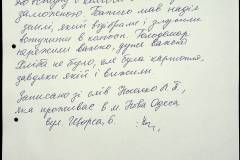 заможною. Батько мав надія
землі, який відібрали і змусили
вступити в колгосп. Голодомор
пережили важко, дуже важко
Хліба не було, але була картопля,
завдяки якій і вижили
Записано зі слів Носенко Л.П.,
яка проживає в м. Нова Одеса
вул. Щорса, 6.